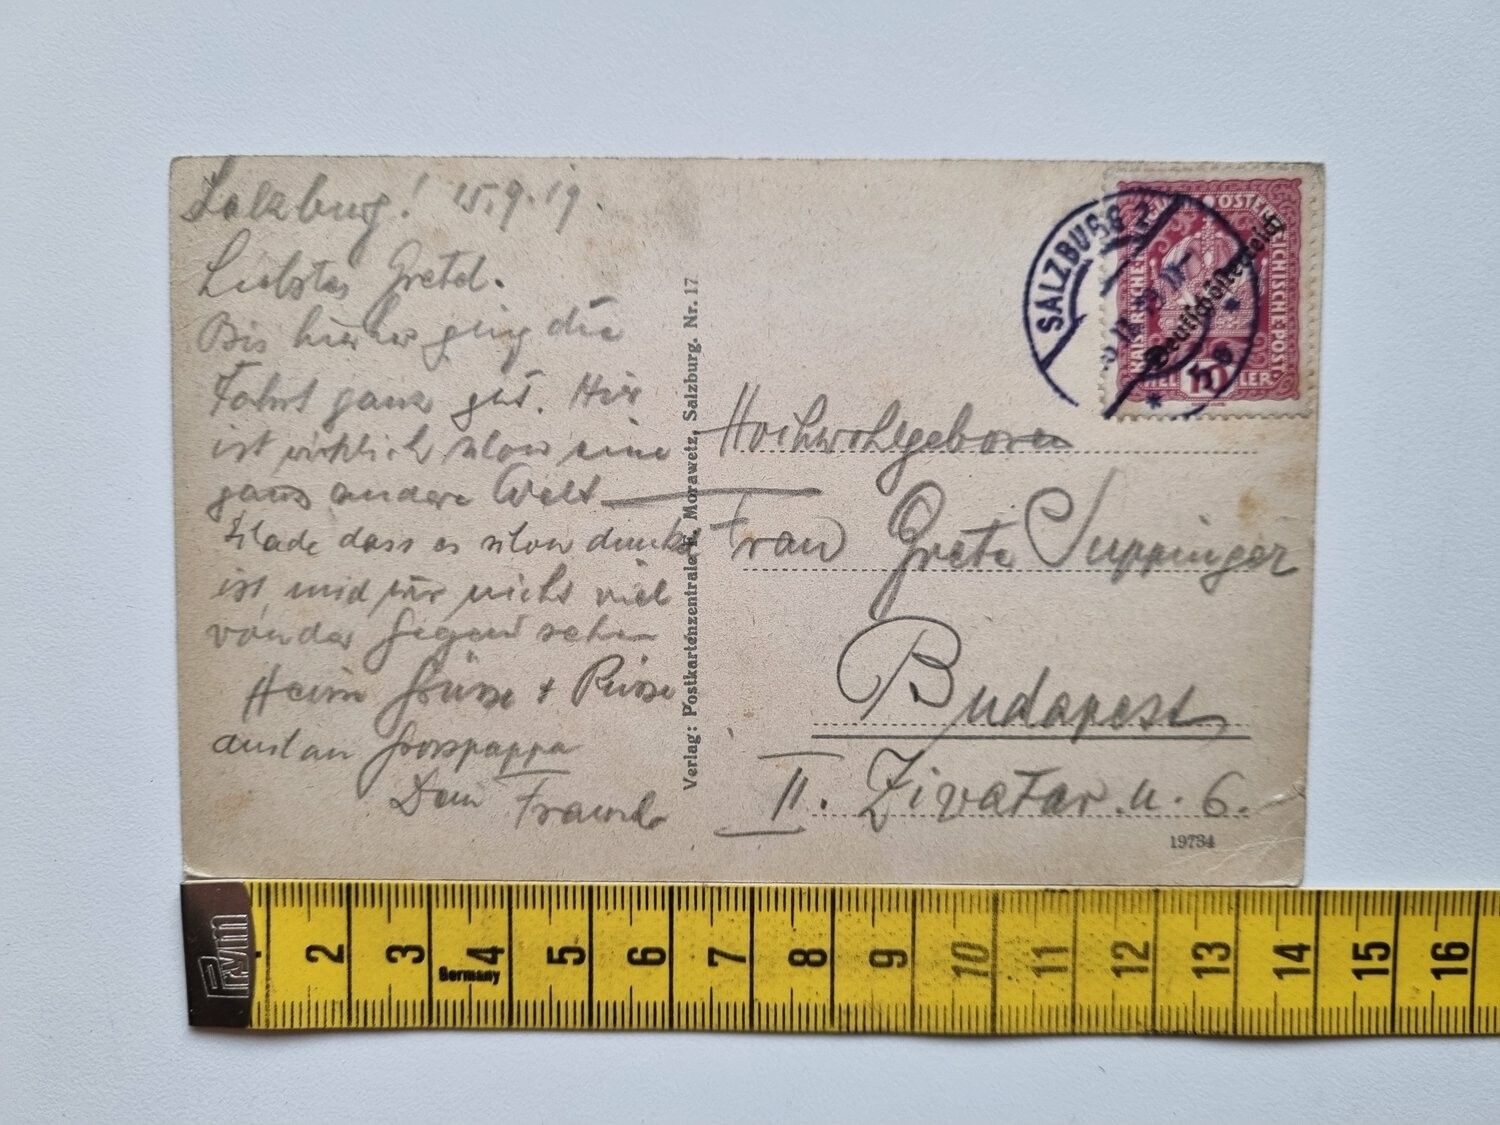 Salzburg! 15.9.19.
Liebstes Gretel.
Bis hierher ging die
Fahrt ganz gut. Hier
ist wirklich schon eine
ganz andere Welt
Schade dass es schon dunkel
ist und wir nicht viel
von der Gegend sehen
Grüsse + Küsse
auch an Grosspappa
Dein
Verlag: Postkartenzentrale F. Morawetz, Salzburg. Nr. 17
SALZBURG 2
KAISERLICHE KÖNIGL. ÖSTERREICHISCHE POST
Deutschösterreich
HELLER
10
Hochwohlgeboren
Frau Grete Suppinger
Budapest
II. Zivatar. u. 6.
19734
Prym
Germany
2 3 4 5 6 7 8 9 10 11 12 13 14 15 16